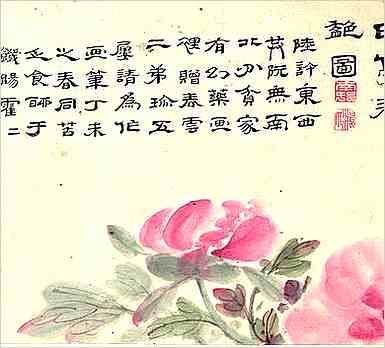 圖
陸許東西
共阮無南
北分貧家
有幻藥画
裡贈春雲
二弟珍五
屢請為作
画筆丁未
之春同苦
乏食于
鐵腸霍二